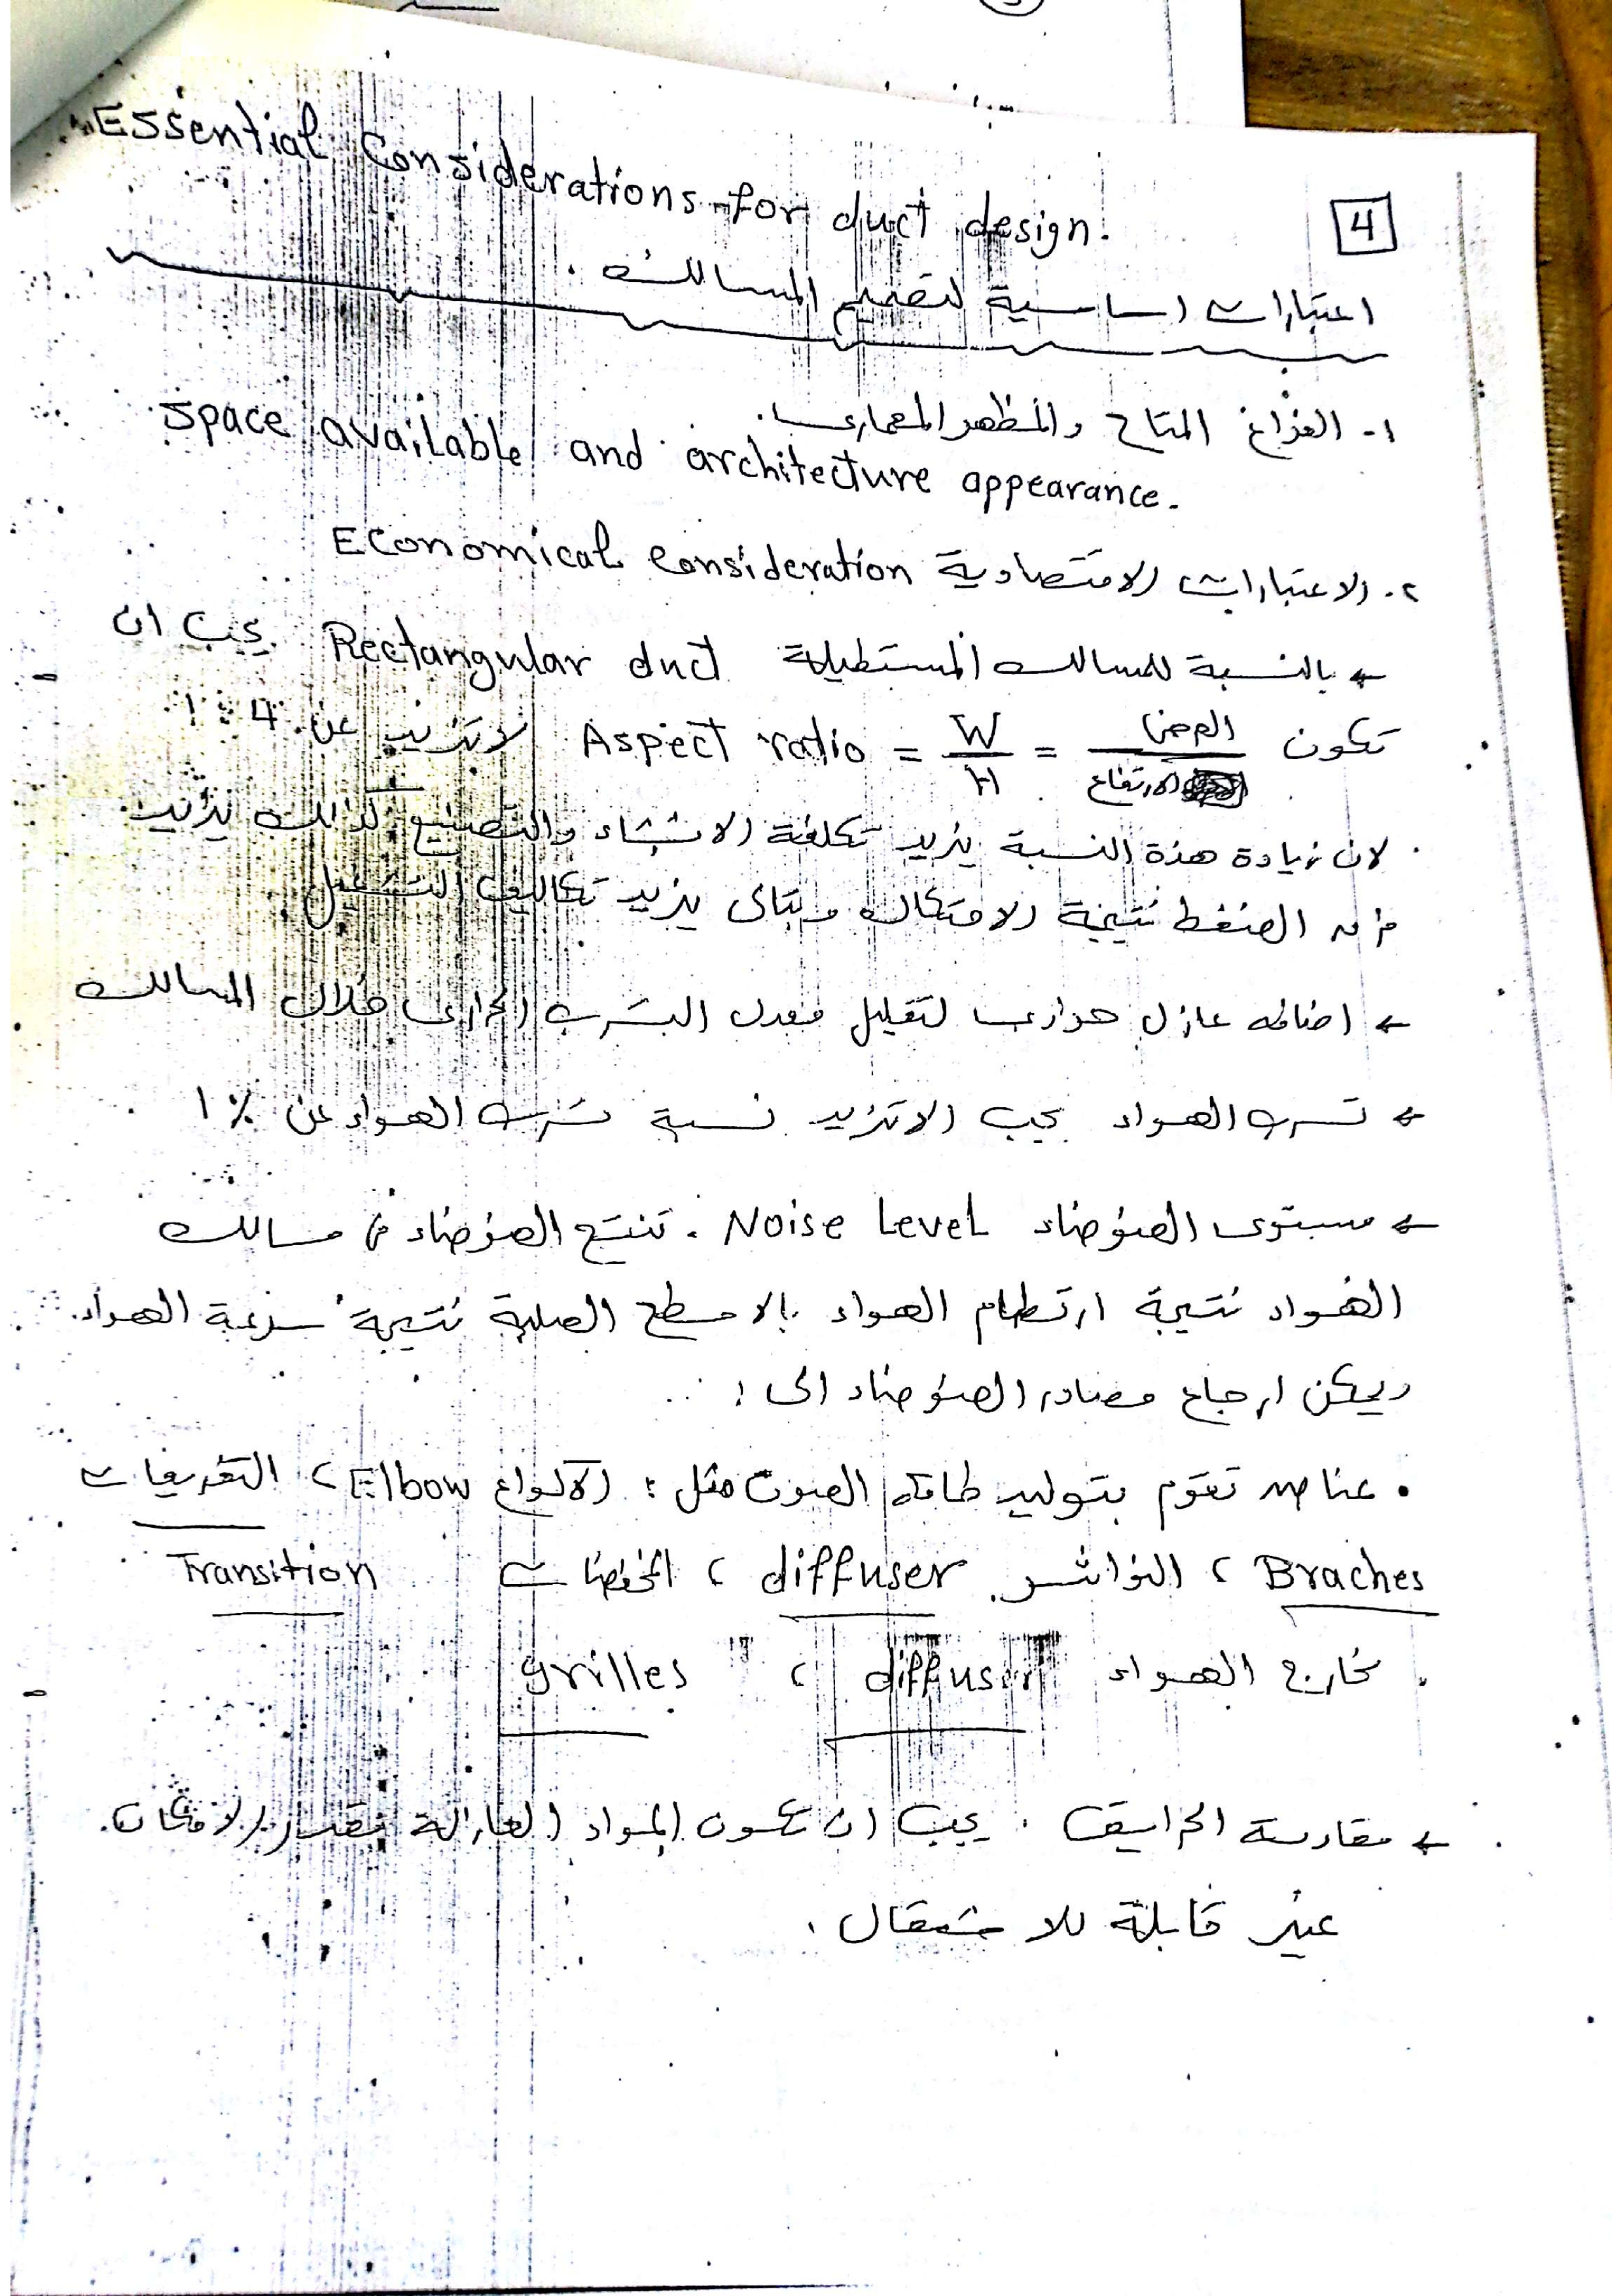 Essential Considerations for duct design.
4
اعتبارات اساسية لتصميم المسالك .
١- الفراغ المتاح والمظهر المعمارى .
Space available and architecture appearance.
٢. الاعتبارات الاقتصادية Economical Consideration
← بالنسبة للمسالك المستطيلة Rectangular duct يجب ان
تكون العرض / الارتفاع = W / H = Aspect ratio لا تزيد عن 4 : 1
لان زيادة هذة النسبة يزيد تكلفة الانشاء والتصنيع كذالك يزيد
الضغط نتيجة الاحتكاك يزيد تكاليف التشغيل .
← اضافه عازل حرارى لتقليل معدل التسرب الحرارى خلال المسالك
← تسرب الهواء يجب الا تزيد نسبة تسرب الهواء عن ١ %
← مستوى الضوضاء Noise Level . تنتج الضوضاء فى مسالك
الهواء نتيجة ارتطام الهواء بالاسطح الصلبة نتيجة سرعة الهواء.
ويمكن ارجاع مصادر الضوضاء الى :
. عناصر تقوم بتوليد طاقه الصوت مثل : الاكواع Elbow ، التفريعات
Braches ، النواشر diffuser ، المخفضات Transition
. مخارج الهواء diffuser ، grilles
← مقاومة الحرايق . يجب ان تكون المواد العازلة بقدر الامكان
غير قابلة للاشتعال .